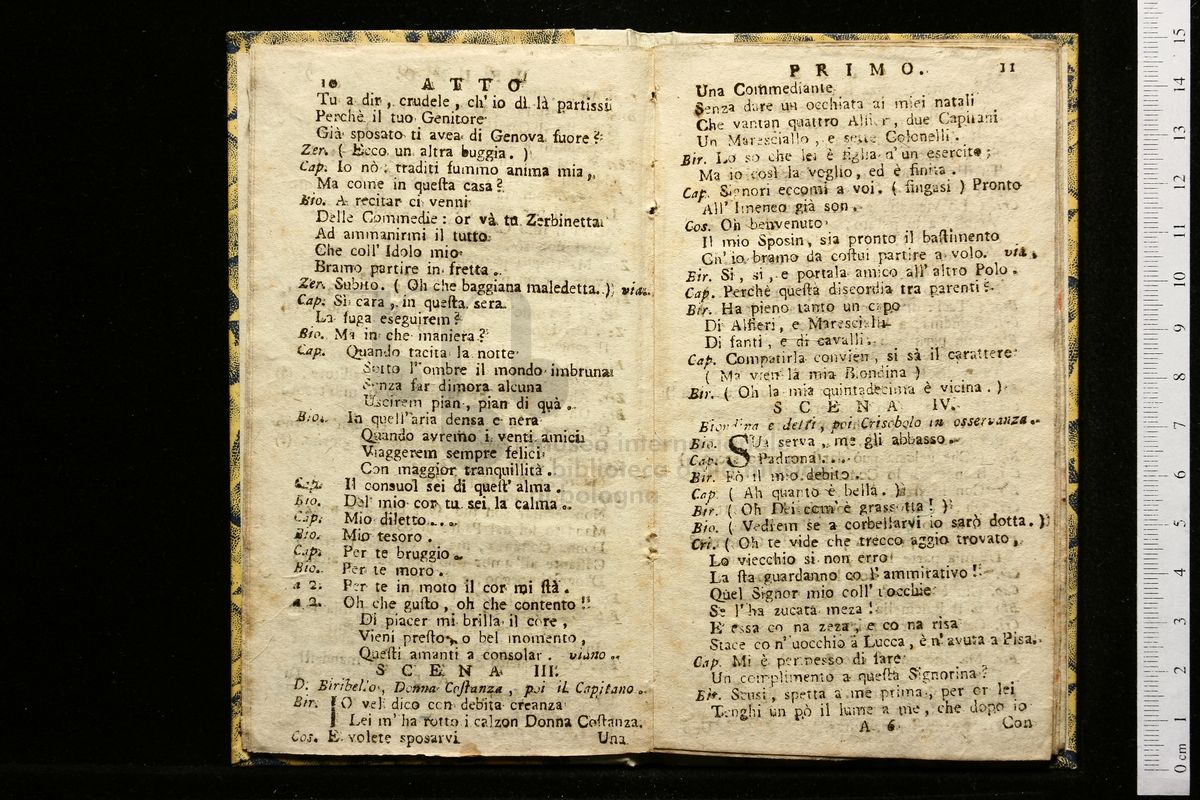 10 ATTO
Tu a dir, crudele, ch' io di là partissi
Perchè il tuo Genitore
Già sposato ti avea di Genova fuore?
Zer. ( Ecco un altra buggia. )
Cap. Io nò: traditi fummo anima mia,
Ma come in questa casa?
Bio. A recitar ci venni
Delle Commedie: or và tu Zerbinetta
Ad ammanirmi il tutto
Che coll' Idolo mio
Bramo partire in fretta.
Zer. Subito. ( Oh che baggiana maledetta. ) via.
Cap. Si cara, in questa sera
La fuga eseguirem?
Bio. Ma in che maniera?
Cap. Quando tacita la notte
Sotto l'ombre il mondo imbruna
Senza far dimora alcuna
Uscirem pian, pian di quà.
Bio. In quell'aria densa e nera
Quando avremo i venti amici
Viaggerem sempre felici
Con maggior tranquillità.
Cap. Il consuol sei di quest' alma.
Bio. Del mio cor tu sei la calma.
Cap. Mio diletto...
Bio. Mio tesoro.
Cap. Per te bruggio.
Bio. Per te moro.
a 2. Per te in moto il cor mi stà.
a 2. Oh che gusto, oh che contento!
Di piacer mi brilla il core,
Vieni presto, o bel momento,
Questi amanti a consolar. viano.
SCENA III.
D. Biribello, Donna Costanza, poi il Capitano.
Bir. IO vel dico con debita creanza
Lei m' ha rotto i calzon Donna Costanza.
Cos. E volete sposarvi
Una
PRIMO. 11
Una Commediante
Senza dare un occhiata ai miei natali
Che vantan quattro Alfier, due Capitani
Un Maresciallo, e sette Colonelli.
Bir. Lo so che lei è figlia d'un esercito;
Ma io così la voglio, ed è finita.
Cap. Signori eccomi a voi. ( fingasi ) Pronto
All' Imeneo già son.
Cos. Oh benvenuto
Il mio Sposin, sia pronto il bastimento
Ch' io bramo da costui partire a volo. via.
Bir. Si, si, e portala amico all' altro Polo.
Cap. Perchè questa discordia tra parenti?
Bir. Ha pieno tanto un capo
Di Alfieri, e Marescialli
Di fanti, e di cavalli.
Cap. Compatirla convien, si sà il carattere
( Ma vien la mia Biondina )
Bir. ( Oh la mia quintadecima è vicina. )
SCENA IV.
Biondina e detti, poi Crisobolo in osservanza.
Bio. SUa serva, me gli abbasso.
Cap. Padrona...
Bir. Fò il mio debito.
Cap. ( Ah quanto è bella. )
Bir. ( Oh Dei com' è grassotta! )
Bio. ( Vediem se a corbellarvi io sarò dotta. )
Cri. ( Oh te vide che trecco aggio trovato,
Lo viecchio si non erro
La sta guardanno co l' ammirativo!
Quel Signor mio coll' uocchie
Se l' ha zucata meza!
E' essa co na zeza, e co na risa
Stace co n' uocchio a Lucca, è n' avuta a Pisa.
Cap. Mi è permesso di fare
Un complimento a questa Signorina?
Bir. Scusi, spetta a me prima, per or lei
Tenghi un pò il lume a me, che dopo io
A 6 Con